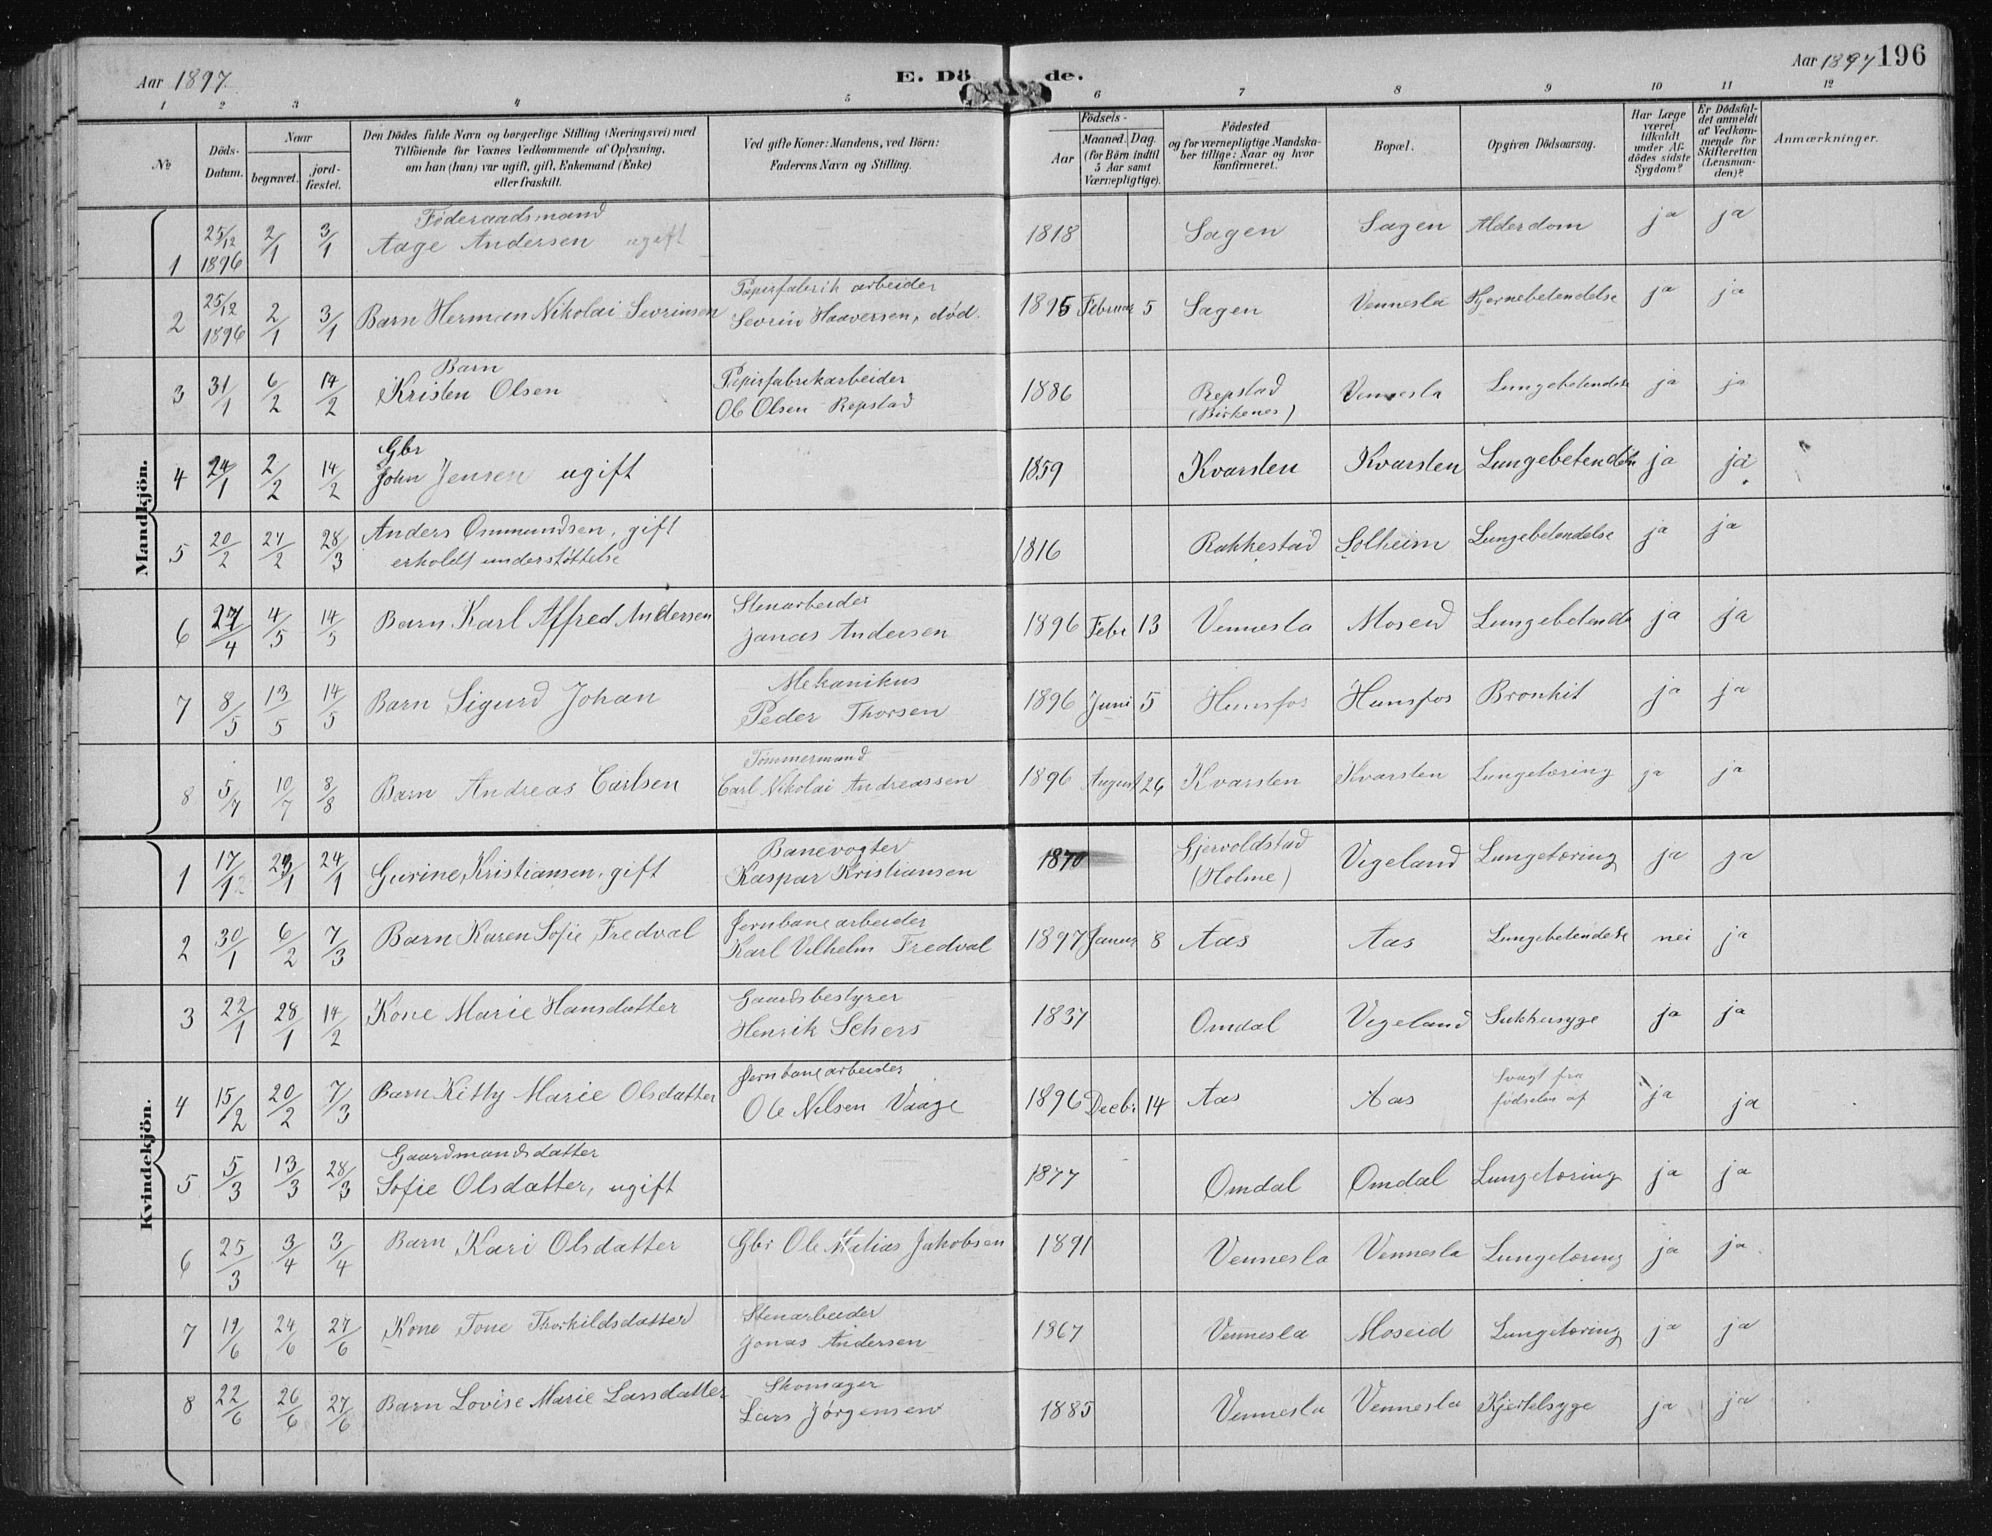 Aar 1897.
E. Dö de.
Aar 1897 196
1 2 3 4 5 6 7 8 9 10 11 12
№
Döds-
Datum.
Naar
begravet.
jord-
fæstet.
Den Dödes fulde Navn og borgerlige Stilling (Næringsvei) med
Tilföiende for Voxnes Vedkommende af Oplysning,
om han (hun) var ugift, gift, Enkemand (Enke)
eller fraskilt.
Ved gifte Koner: Mandens, ved Börn:
Faderens Navn og Stilling.
Födsels-
Aar
Maaned. Dag.
(for Börn indtil
5 Aar samt
Værnepligtige).
Födested
og for værnepligtige Mandska-
ber tillige: Naar og hvor
konfirmeret.
Bopæl.
Opgiven Dödsaarsag.
Har Læge
været
tilkaldt
under Af-
dödes sidste
Sygdom?
Er Dödsfal-
det anmeldt
af Vedkom-
mende for
Skifteretten
(Lensman-
den)?
Anmærkninger.
Mandkjön.
1 25/12 1896 2/1 3/1 Føderaadsmand
Aage Andersen ugift 1818 Sagen Sagen Alderdom ja ja
2 25/12 1896 2/1 3/1 Barn Herman Nikolai Sevrinsen Papirfabrik arbeider
Sevrin Haaversen, død. 1895 Februar 5 Sagen Vennesla Hjernebetendelse ja ja
3 31/1 6/2 14/2 Barn
Kristen Olsen Papirfabrikarbeider
Ole Olsen Repstad 1886 Repstad
(Birkenes) Vennesla Lungebetendelse ja ja
4 24/1 2/2 14/2 Gbr
John Jensen ugift 1859 Kvarsten Kvarsten Lungebetendelse ja ja
5 20/2 27/2 28/3 Anders Ommundsen, gift
erholdt understøttelse 1816 Rakkestad Solheim Lungebetendelse ja ja
6 27/4 4/5 14/5 Barn Karl Alfred Andersen Stenarbeider
Jonas Andersen 1896 Febr 13 Vennesla Moseid Lungebetende ja ja
7 8/5 13/5 14/5 Barn Sigurd Johan Mekanikus
Peder Thorsen 1896 Juni 5 Hunsfos Hunsfos Bronkit ja ja
8 5/7 10/7 8/8 Barn Andreas Carlsen Tømmermand
Carl Nikolai Andreassen 1896 August 26 Kvarsten Kvarsten Lungetæring ja ja
Kvindekjön.
1 17/12 23/1 24/1 Gurine Kristiansen, gift Banevogter
Kaspar Kristiansen 1870 Gjervoldstad
(Holme) Vigeland Lungetæring ja ja
2 30/1 6/2 7/3 Barn Karen Sofie Fredval Jernbanearbeider
Karl Vilhelm Fredval 1897 Januar 8 Aas Aas Lungebetendelse nei ja
3 22/1 28/1 14/2 Kone Marie Hansdatter Gaardsbestyrer
Henrik Schers 1837 Omdal Vigeland Sukkersyge ja ja
4 15/2 20/2 7/3 Barn Kitty Marie Olsdatter Jernbanearbeider
Ole Nilsen Vaage 1896 Decbr 14 Aas Aas Svagt fra
fødselen af ja ja
5 5/3 13/3 28/3 Gaardmandsdatter
Sofie Olsdatter, ugift 1877 Omdal Omdal Lungetæring ja ja
6 25/3 3/4 3/4 Barn Kari Olsdatter Gbr Ole Matias Jakobsen 1891 Vennesla Vennesla Lungetæring ja ja
7 19/6 24/6 27/6 Kone Tone Thorkildsdatter Stenarbeider
Jonas Andersen 1867 Vennesla Moseid Lungetæring ja ja
8 22/6 26/6 27/6 Barn Lovise Marie Larsdatter Skomager
Lars Jørgensen 1885 Vennesla Vennesla Kjertelsyge ja ja